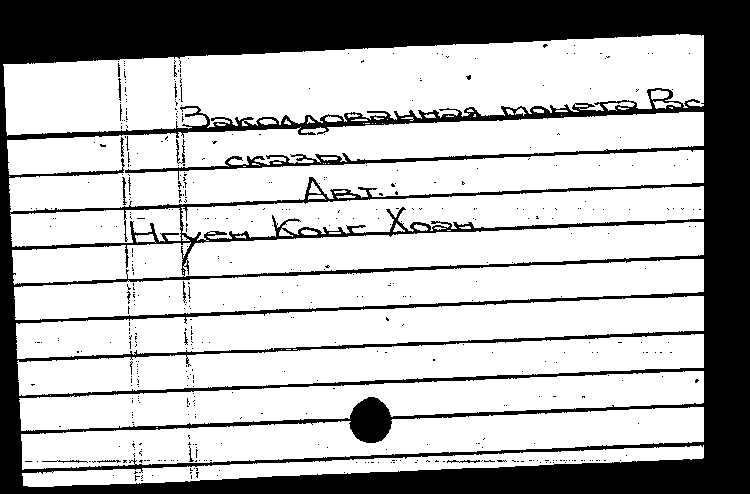 Заколдованная монета Рас
сказы.
Авт.:
Нгуен Конг Хоан.